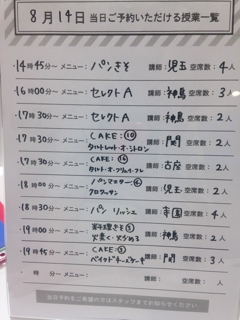 8月14日 当日ご予約いただける授業一覧
14時45分〜 メニュー：パンきそ 講師：児玉 空席数：4人
16時00分〜 メニュー：セレクトA 講師：神鳥 空席数：3人
17時30分〜 メニュー：セレクトA 講師：神鳥 空席数：2人
17時30分〜 メニュー：CAKE：⑩ タルトレット・オ・シトロン 講師：関 空席数：2人
17時30分〜 メニュー：CAKE：⑯ 講師：古座 空席数：2人
18時00分〜 メニュー：パンマスター④ クロワッサン 講師：児玉 空席数：2人
18時30分〜 メニュー：パン リッシュ 講師：寺園 空席数：4人
19時00分〜 メニュー：お料理きそ① 火炊く・火かめる 講師：神鳥 空席数：2人
19時45分〜 メニュー：CAKE：③ ベイクドチーズケーキ 講師：関 空席数：3人
時 分〜 メニュー： 講師： 空席数： 人
当日予約をご希望の方はスタッフまでお知らせください